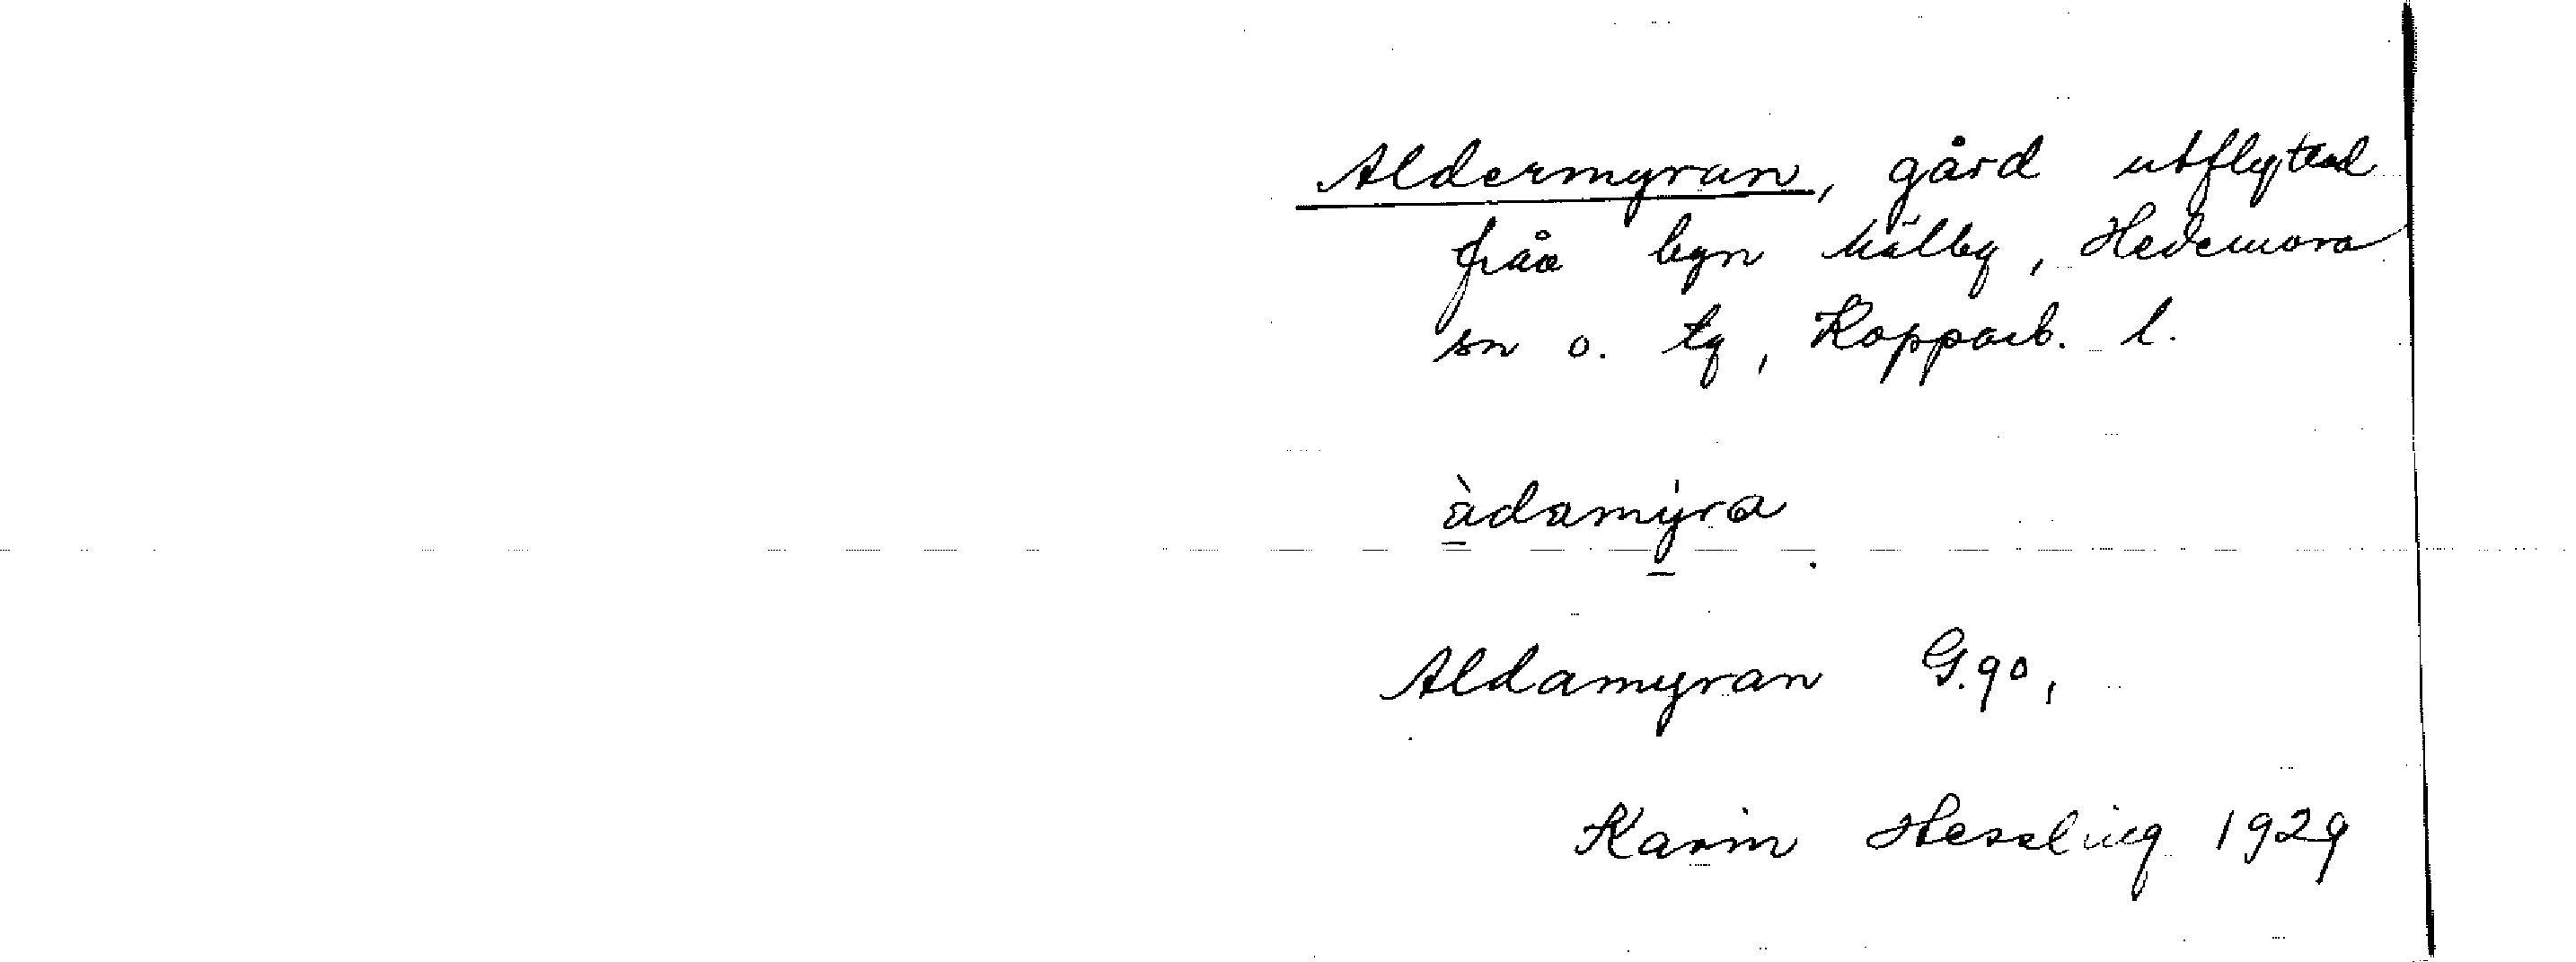 Aldermyran, gård utflyttad
från byn Mälby, Hedemora
sn o. tg, Kopparb. l.
àdamy̍ra
Aldamyran G.90,
Karin Hessling 1929